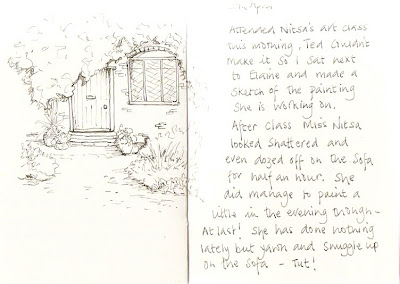 April
Attended Nitsa's art class
this morning, Ted couldn't
make it so I sat next
to Elaine and made a
sketch of the painting
she is working on.
After class Miss Nitsa
looked shattered and
even dozed off on the sofa
for half an hour. She
did manage to paint a
little in the evening though-
At last! She has done nothing
lately but yawn and snuggle up
on the sofa - Tut!